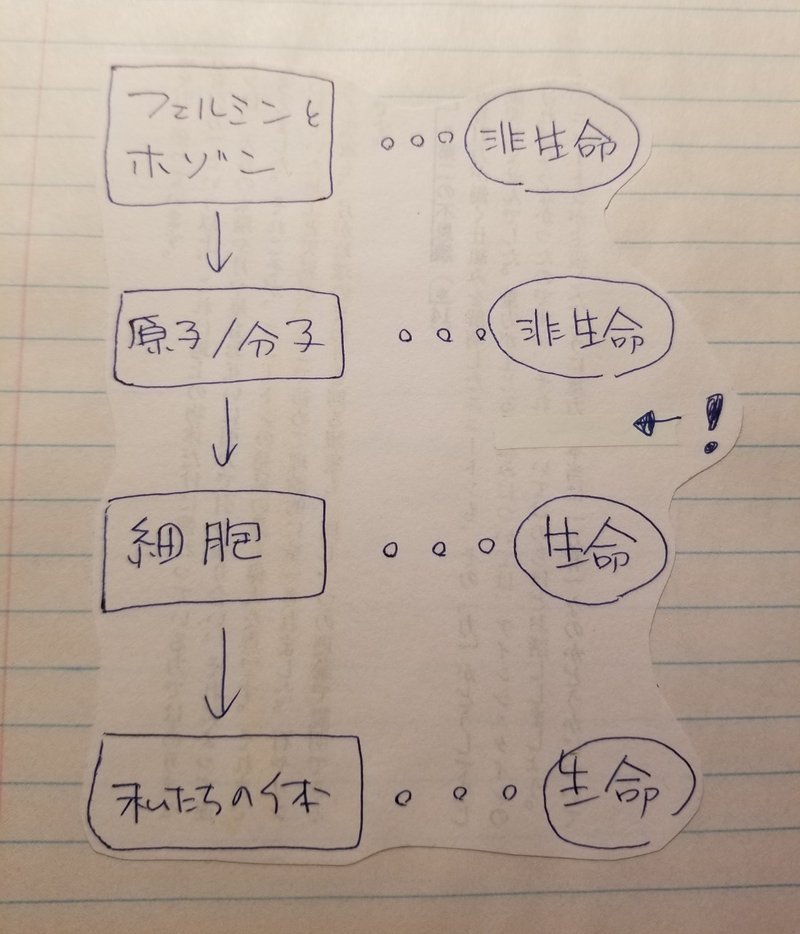 フェルミンと
ホゾン
・・・ 非生命
原子/分子 ・・・ 非生命
!
細胞 ・・・ 生命
私たちの体 ・・・ 生命